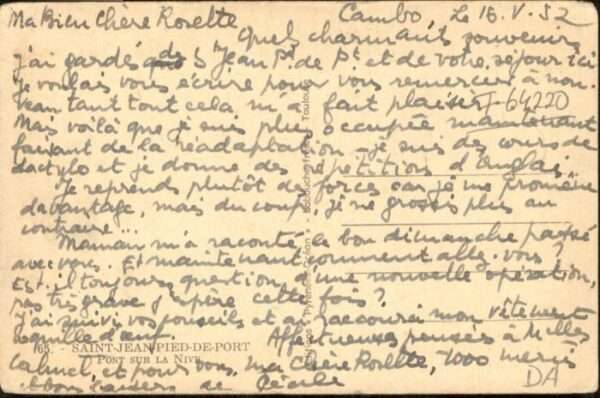 Ma Bien Chère Rosette
Cambo, Le 15.V.52
Quel charmants souvenirs
j'ai gardés de St Jean Pd. de Pt. et de votre séjour ici
Je voulais vous écrire pour vous remercier à nou-
veau tant tout cela m'a fait plaisir
I-64220
Mais voilà que je suis plus occupée maintenant
faisant de la réadaptation - je suis des cours de
dactylo et je donne des répétitions d'anglais...
Je reprends plutôt des forces car je me promène
davantage, mais du coup, je ne grossis plus au
contraire...
Maman m'a raconté ce bon dimanche passé
avec vous. Et maintenant comment allez-vous?
Est-il toujours question d'une nouvelle opération,
pas très grave j'espère cette fois?
J'ai suivi vos conseils et ai raccourci mon vêtement
65. - SAINT-JEAN-PIED-DE-PORT
PONT SUR LA NIVE
Affectueuses pensées à Melles
et pour vous, Ma Chère Rosette, 1000 mercis
et bons baisers de Cécile
DA
Toulouse